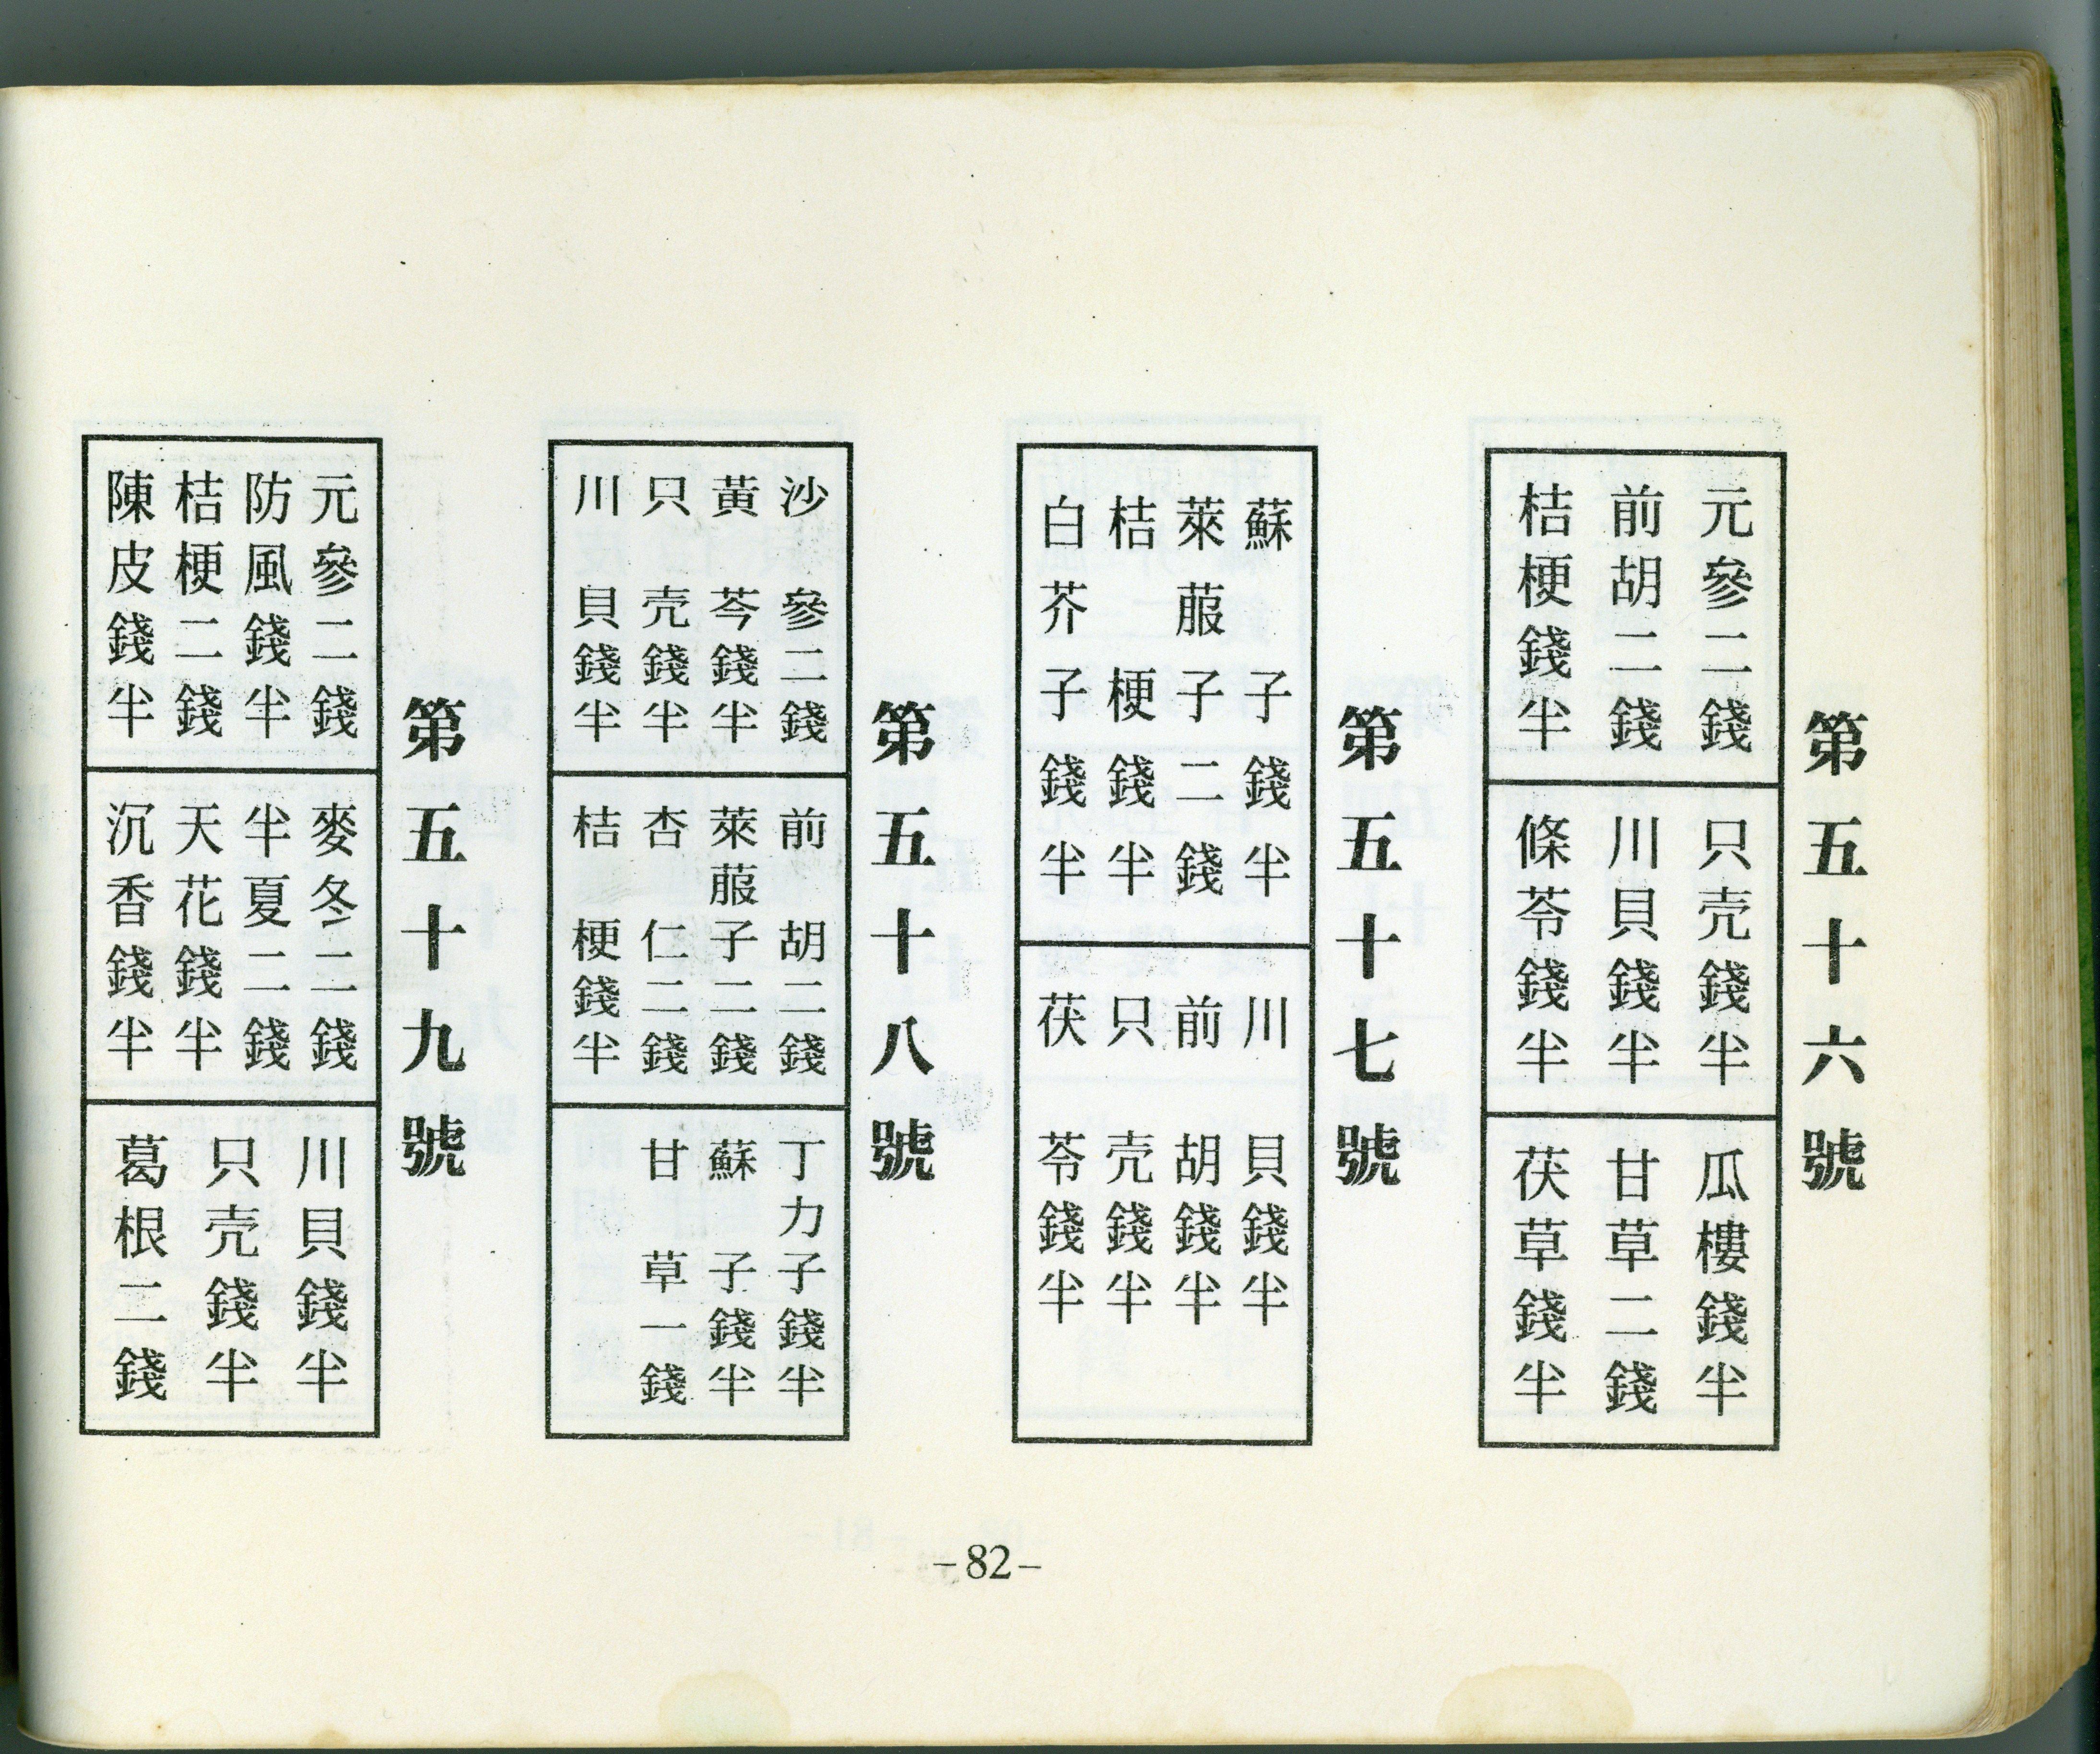 第五十六號
元參二錢
前胡二錢
桔梗錢半
只壳錢半
川貝錢半
條苓錢半
瓜樓錢半
甘草二錢
茯草錢半
第五十七號
蘇子錢半
萊菔子二錢
桔梗錢半
白芥子錢半
川貝錢半
前胡錢半
只壳錢半
茯苓錢半
第五十八號
沙參二錢
黃芩錢半
只壳錢半
川貝錢半
前胡二錢
萊菔子二錢
杏仁二錢
桔梗錢半
丁力子錢半
蘇子錢半
甘草一錢
第五十九號
元參二錢
防風錢半
桔梗二錢
陳皮錢半
麥冬二錢
半夏二錢
天花錢半
沉香錢半
川貝錢半
只壳錢半
葛根二錢
-82-